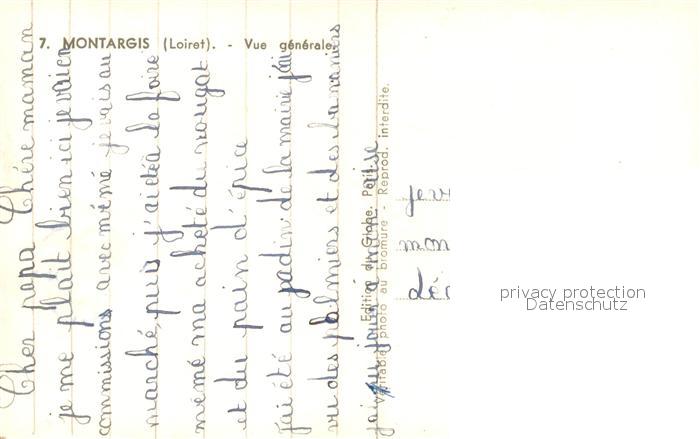 7. MONTARGIS (Loiret). - Vue générale.
Cher papa Chère maman
je me plaît bien ici je vaien
commissions avec mémé je vais au
marché, puis j'ai étéà la foire
mémé ma acheté du nougat
et du pain d'épice
J'ai été au jardin de la mairie j'ai
vu des palmiers et des bananiers
j'ai
Edition du Globe, Paris.
Véritable photo au bromure - Reprod. interdite.
mon
privacy protection
Datenschutz